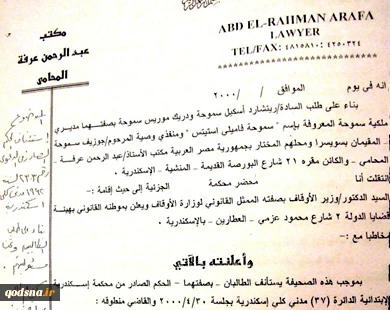 مكتب
عبد الرحمن عرفة
المحامى
ABD EL-RAHMAN ARAFA
LAWYER
TEL/FAX: 4815810: 4250324
انه في يوم الموافق / / ٢٠٠٠
بناء على طلب السادة/ريتشارد أسكيل سموحة ودريك موريس سموحة بصفتهما مديري
ملكية سموحة المعروفة بإسم " سموحة فاميلى استيتس " ومنفذي وصية المرحوم/جوزيف سموحة
المقيمان بسويسرا ومحلهم المختار بجمهورية مصر العربية مكتب الأستاذ/عبد الرحمن عرفة
المحامي - والكائن مقره ٢١ شارع البورصة القديمة - المنشية - الإسكندرية .
انتقلت أنا محضر محكمة الجزئية إلى حيث إقامة :-
السيد الدكتور/وزير الأوقاف بصفته الممثل القانوني لوزارة الأوقاف ويعلن بموطنه القانوني بهيئة
قضايا الدولة ٢ شارع محمود عزمي - العطارين - بالأسكندرية .
مخاطبا مع :-
وأعلنته بالآتي
بموجب هذه الصحيفة يستأنف الطالبان - بصفتهما - الحكم الصادر من محكمة إسكندرية
الإبتدائية الدائرة (٣٧) مدني كلي إسكندرية بجلسة ٢٠٠٠/٤/٣٠ والقاضي منطوقه :
qodsna.ir